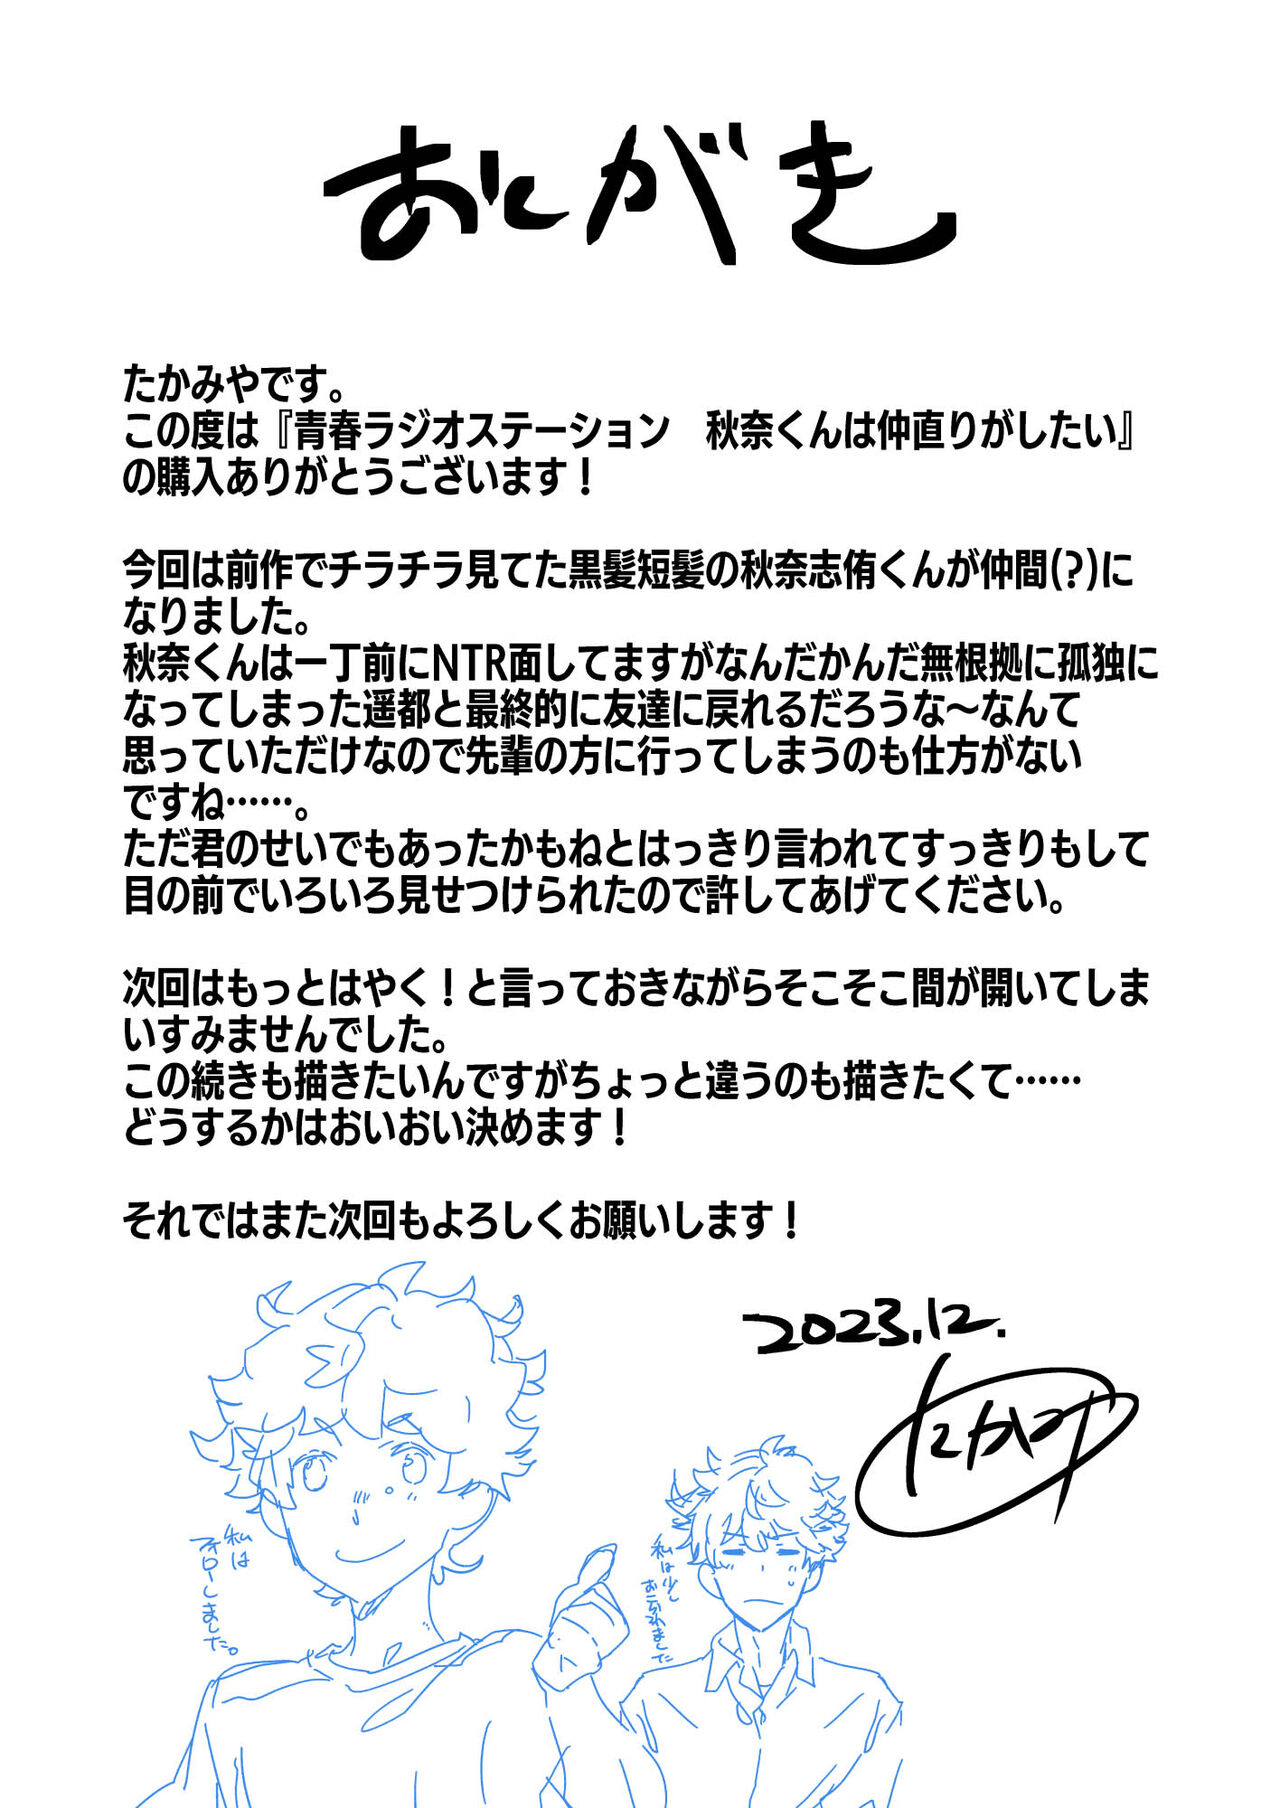 あとがき
たかみやです。
この度は『青春ラジオステーション　秋奈くんは仲直りがしたい』
の購入ありがとうございます！
今回は前作でチラチラ見てた黒髪短髪の秋奈志侑くんが仲間(？)に
なりました。
秋奈くんは一丁前にNTR面してますがなんだかんだ無根拠に孤独に
なってしまった遥都と最終的に友達に戻れるだろうな〜なんて
思っていただけなので先輩の方に行ってしまうのも仕方がない
ですね……。
ただ君のせいでもあったかもねとはっきり言われてすっきりもして
目の前でいろいろ見せつけられたので許してあげてください。
次回はもっとはやく！と言っておきながらそこそこ間が開いてしま
いすみませんでした。
この続きも描きたいんですがちょっと違うのも描きたくて……
どうするかはおいおい決めます！
それではまた次回もよろしくお願いします！
2023.12.
たかみや
私は
フォローしました。
私は少し
おこられました